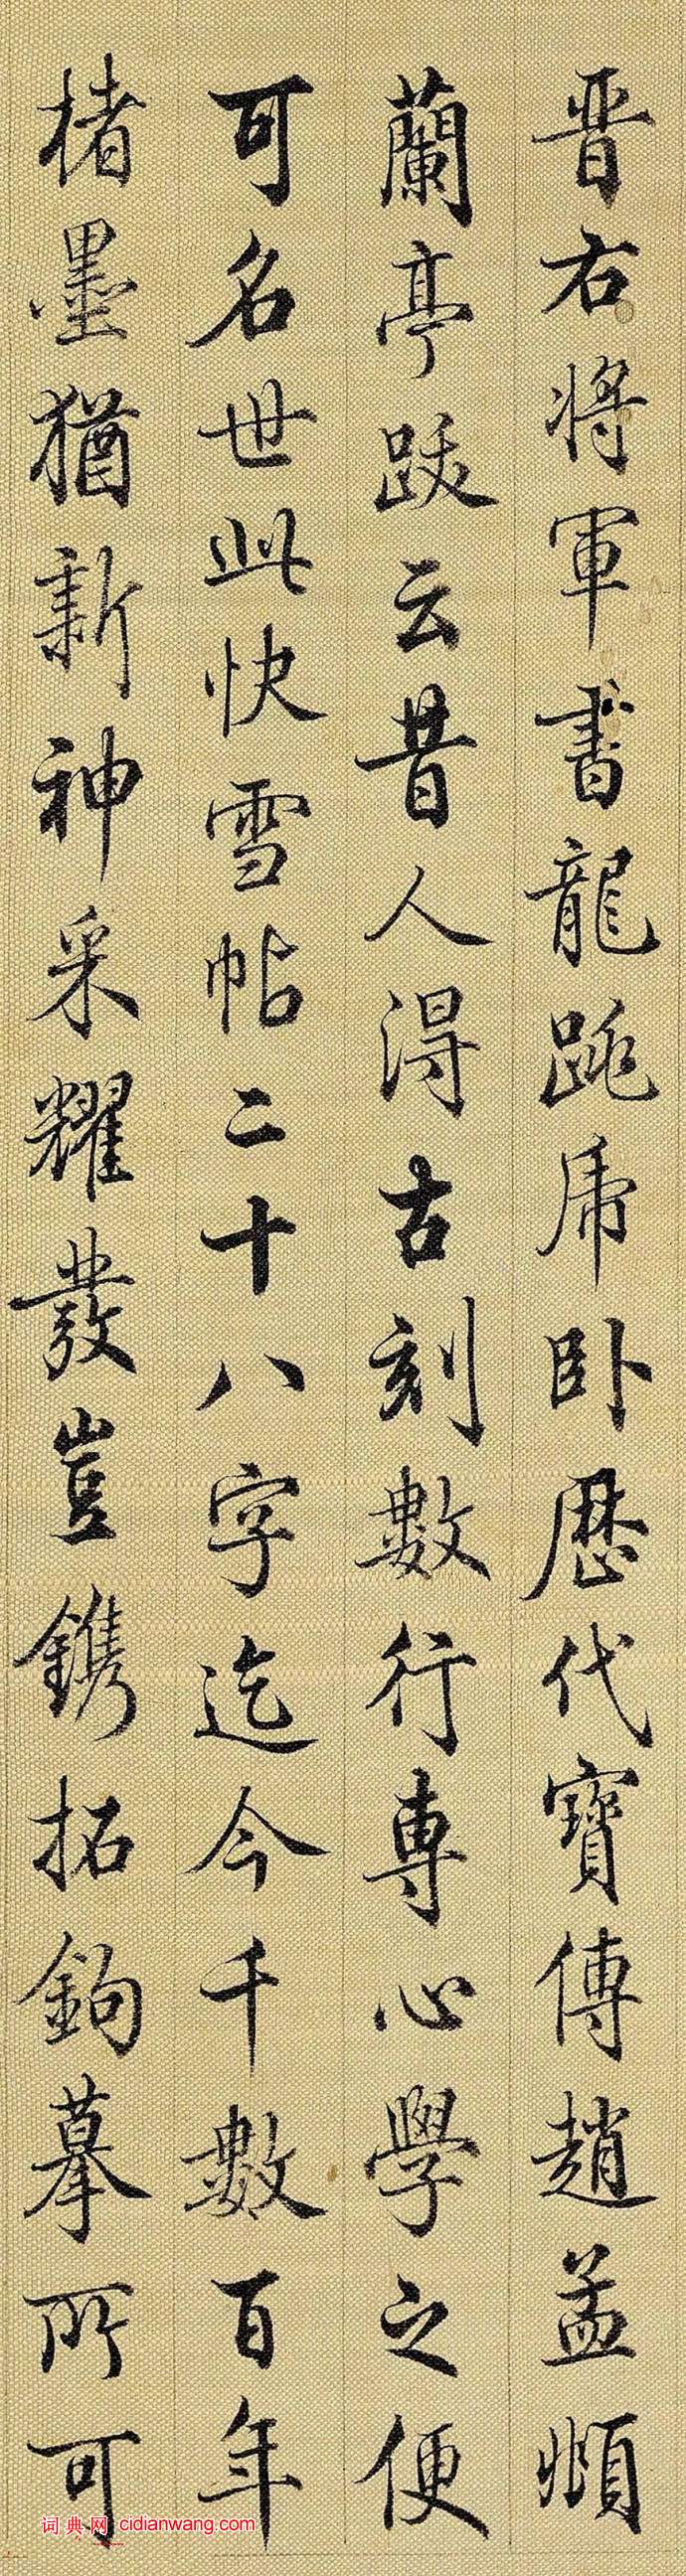 晋右将軍書龍跳虎卧歴代寶傳趙孟頫
蘭亭跋云昔人得古刻數行専心學之便
可名世此快雪帖二十八字迄今千數百年
楮墨猶新神采耀發豈鐫拓鉤摹所可
词典网 cidianwang.com